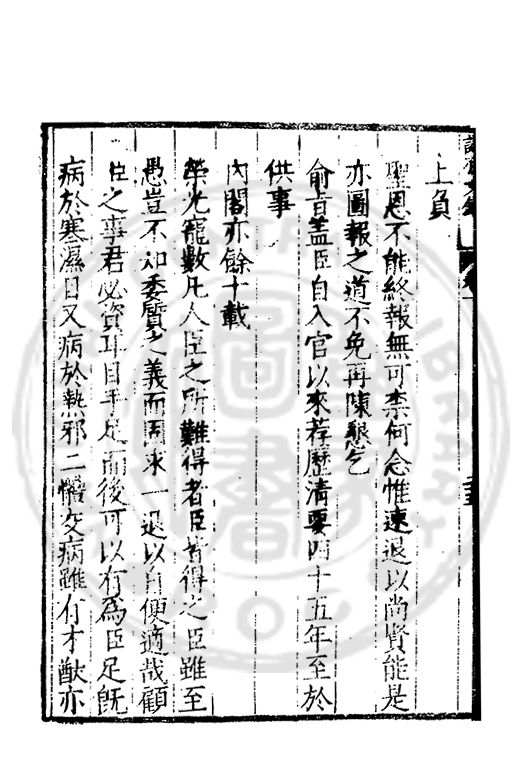 上負
聖恩不能終報無可柰何念惟速退以尚賢能是
亦圖報之道不免再陳懇乞
俞旨蓋臣自入官以來荐歷清要四十五年至於
供事
內閣亦餘十載
榮光寵數凡人臣之所難得者臣皆得之臣雖至
愚豈不知委質之義而固求一退以自便適哉顧
臣之事君必資耳目手足而後可以有為臣足旣
病於寒濕目又病於熱邪二體交病雖有才猷亦